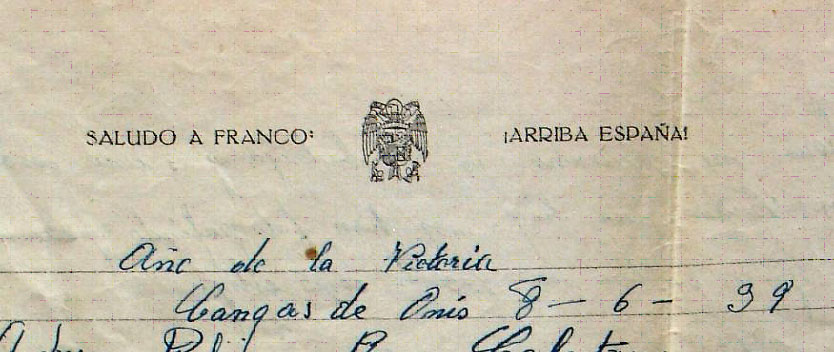 SALUDO A FRANCO: ¡ARRIBA ESPAÑA!
Año de la Victoria
Cangas de Onís 8 - 6 - 39